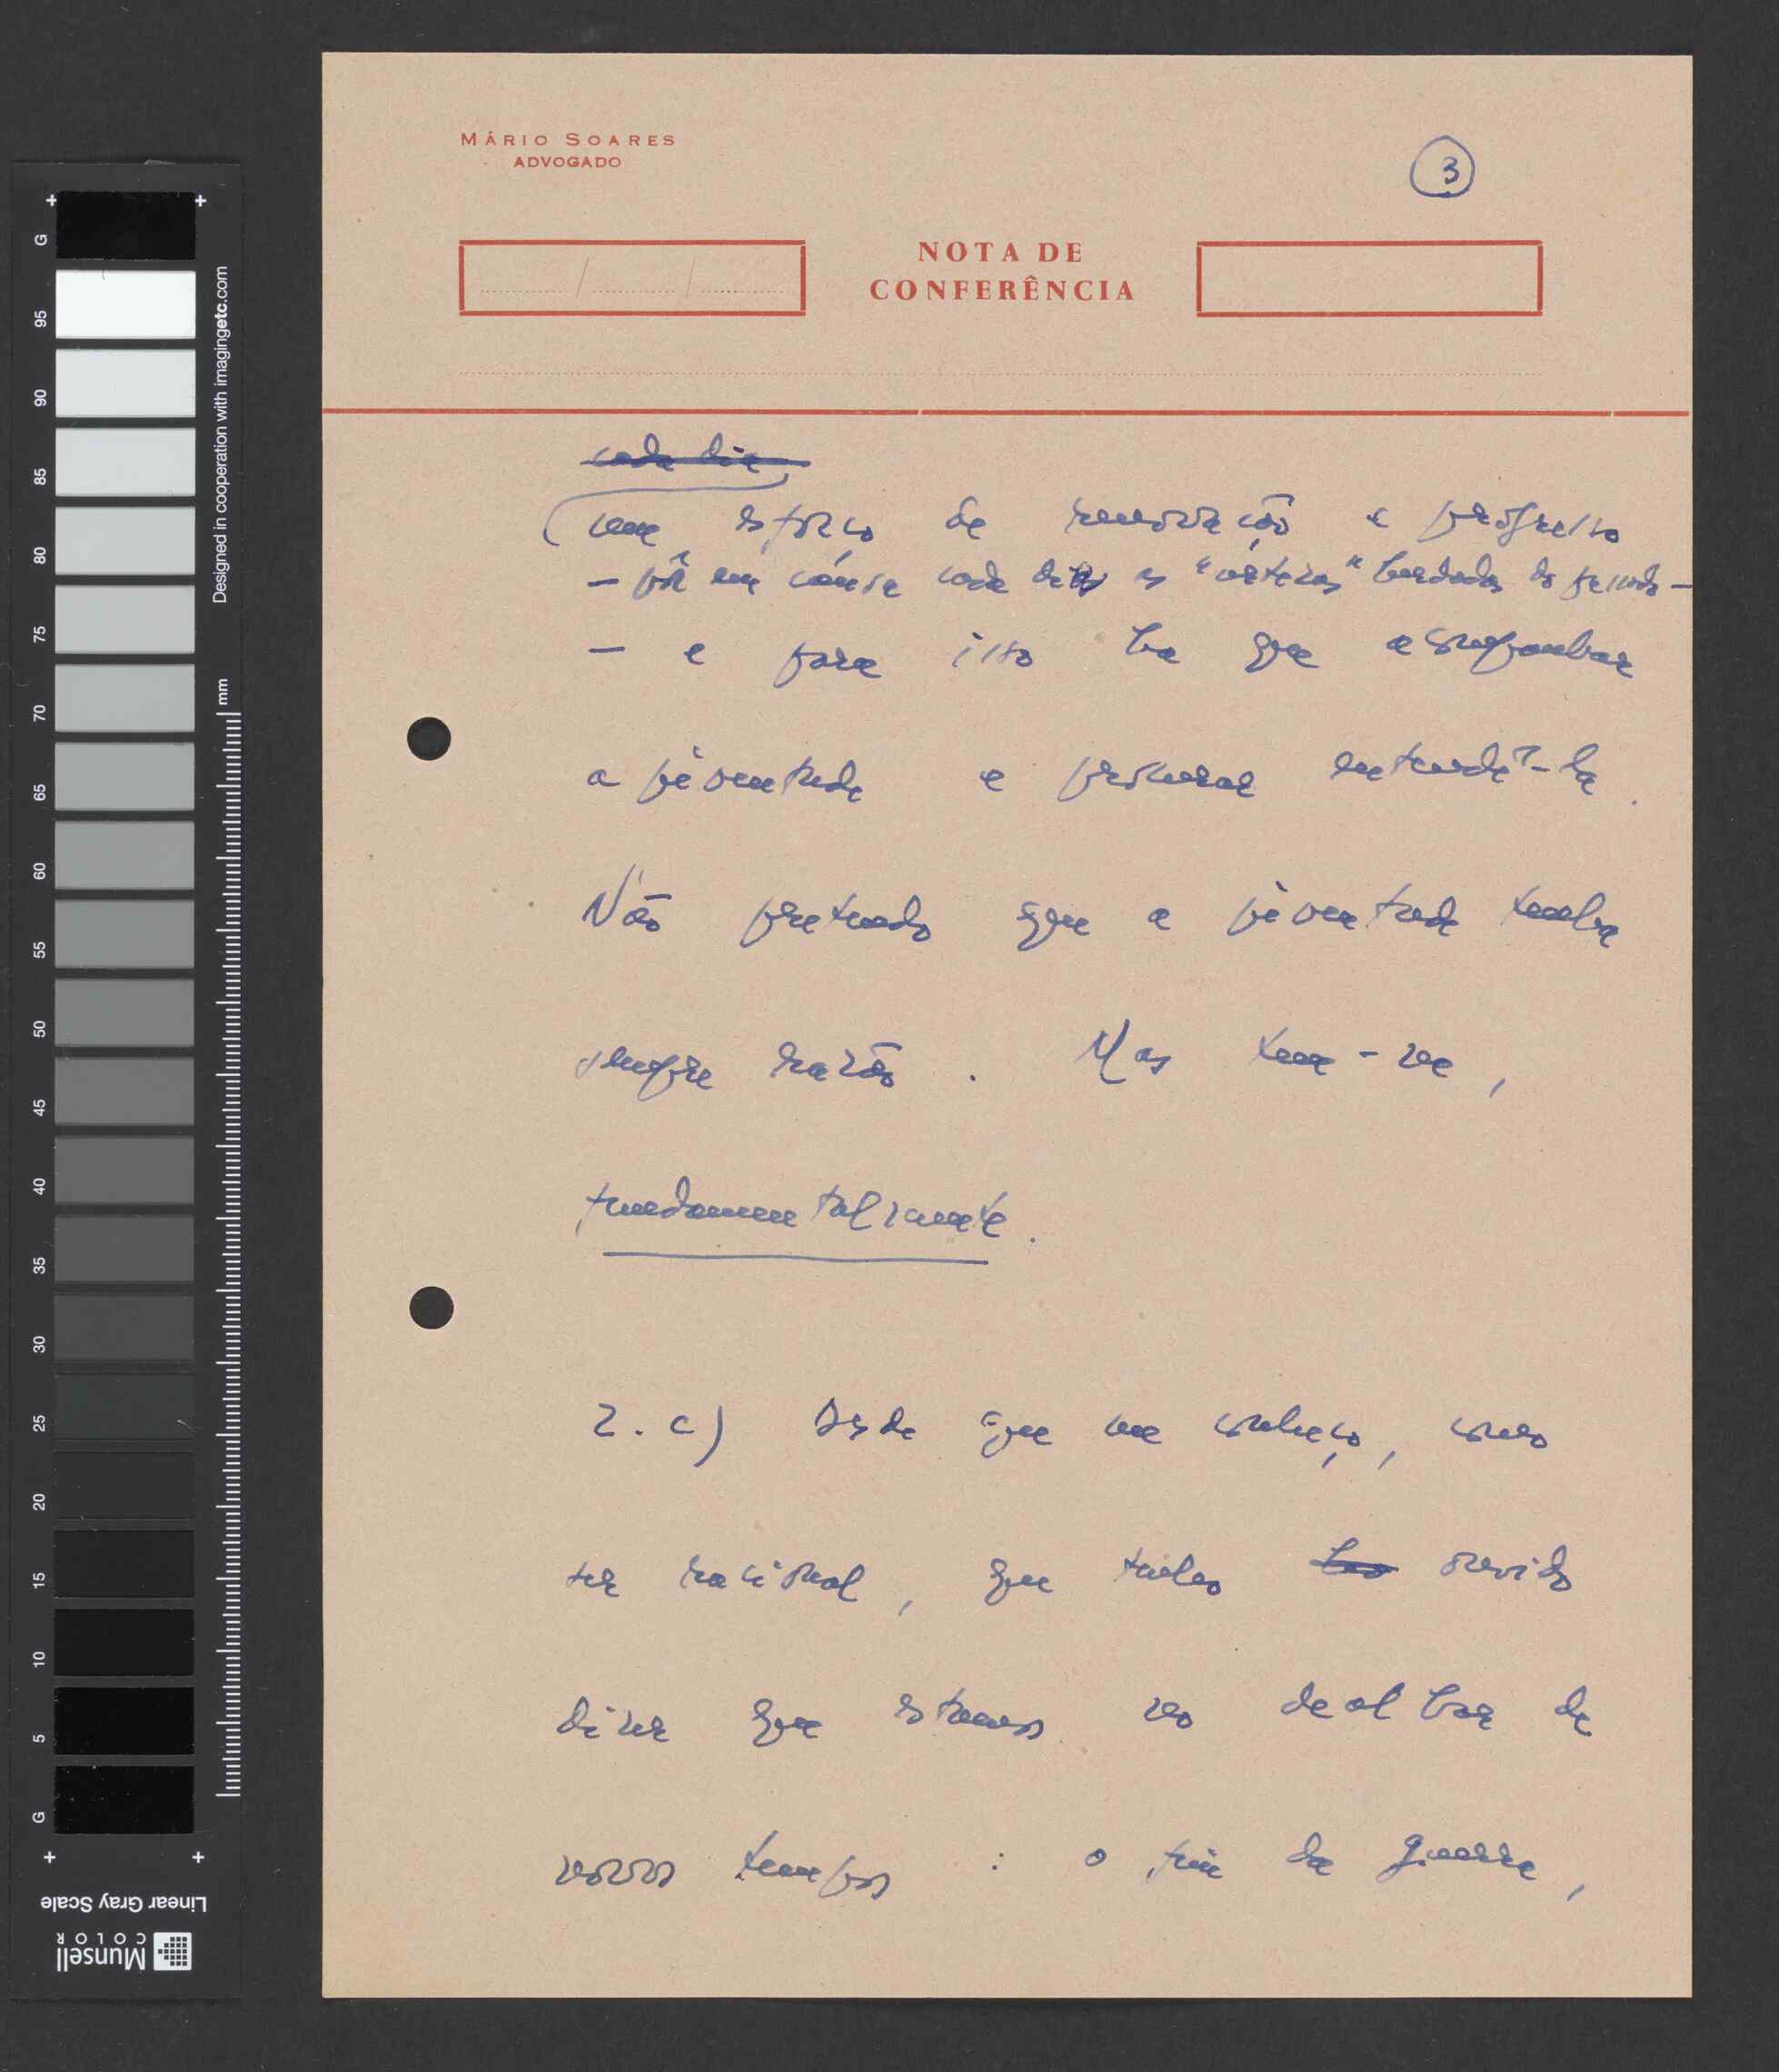 MÁRIO SOARES
ADVOGADO
3
NOTA DE
CONFERÊNCIA
cada dia
um esforço de renovação e progresso
- pôr em causa cada dia as "certezas" herdadas do passado -
- e para isso há que acompanhar
a juventude e procurar entendê-la.
Não pretendo que a juventude tenha
sempre razão. Mas tem-na,
fundamentalmente.
2. c) Desde que me conheço, como
ser racional, que tenho ouvido
dizer que estamos no dealbar de
novos tempos: o fim da guerra,
G
95
90
85
80
75
70
65
60
55
50
45
40
35
30
25
20
15
10
5
G
Designed in cooperation with imagingetc.com
mm
Linear Gray Scale
Munsell
COLOR